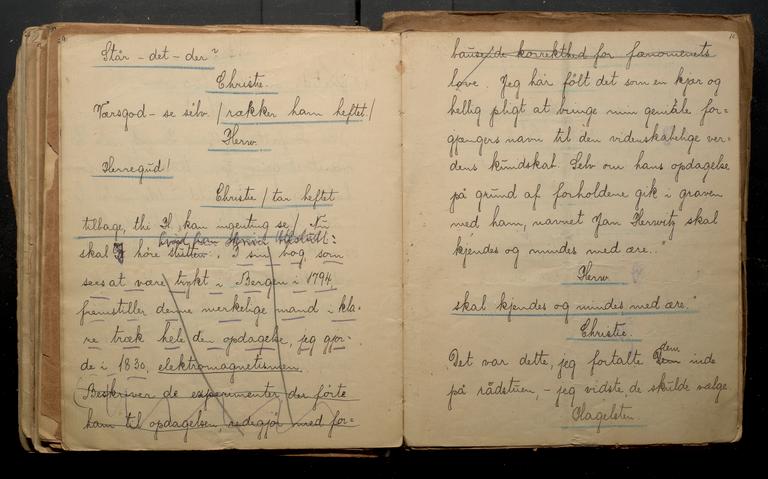 Står – det – der?
Christie.
Værsgod – se selv. / rækker ham heftet /
Herw.
Herregud!
Christie / tar heftet
tilbage, thi H. kan ingenting se / Nu
skal høre slutten. I sin bog, som
sees at være trykt i Bergen i 1794,
fremstiller denne merkelige mand i kla-
re træk hele den opdagelse, jeg gjor-
de i 1830, elektromagnetismen.
(Beskriver de experimenter der førte
ham til opdagelsen, redegjør med for=
bausende korrekthed for fænomenets
love. Jeg har følt det som en kjær og
hellig pligt at bringe min geniale for-
gjengers navn til den videnskabelige ver=
dens kundskab. Selv om hans opdagelse
på grund af forholdene gik i graven
med ham, navnet Jan Herwitz skal
kjendes og mindes med ære.."
Herw.
skal kjendes og mindes med ære."
Christie.
Det var dette, jeg fortalte Dem inde
på rådstuen, – jeg vidste, de skulde vælge
Slagelsten.